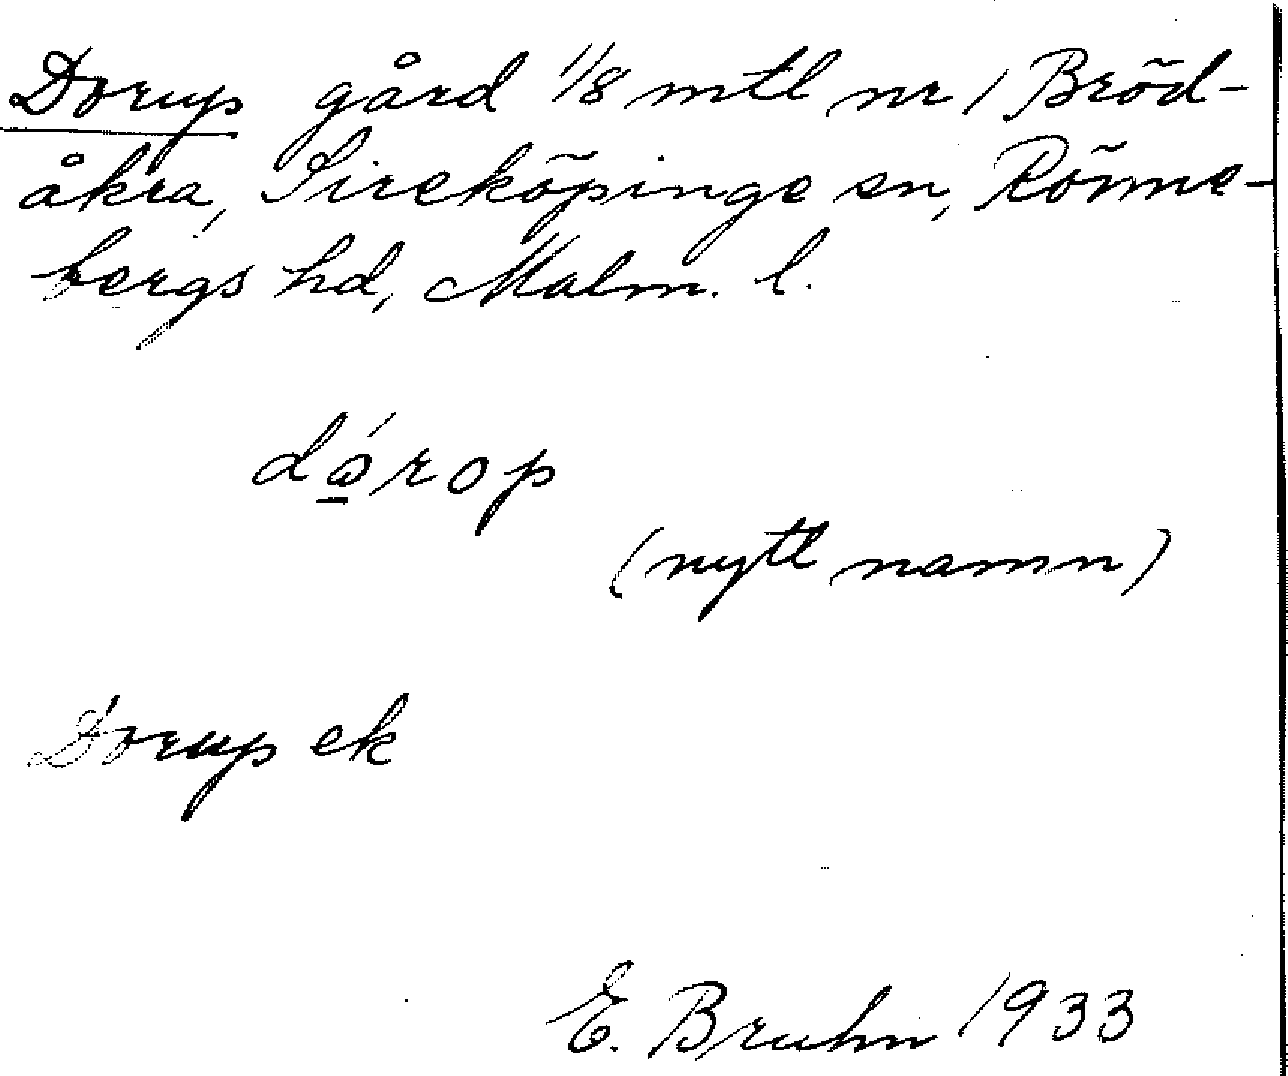 Dorup gård 1/8 mtl nr 1 Bröd-
åkra, Sireköpinge sn, Rönne-
bergs hd, Malm. l.
(nytt namn)
Dorup ek
E. Bruhn 1933